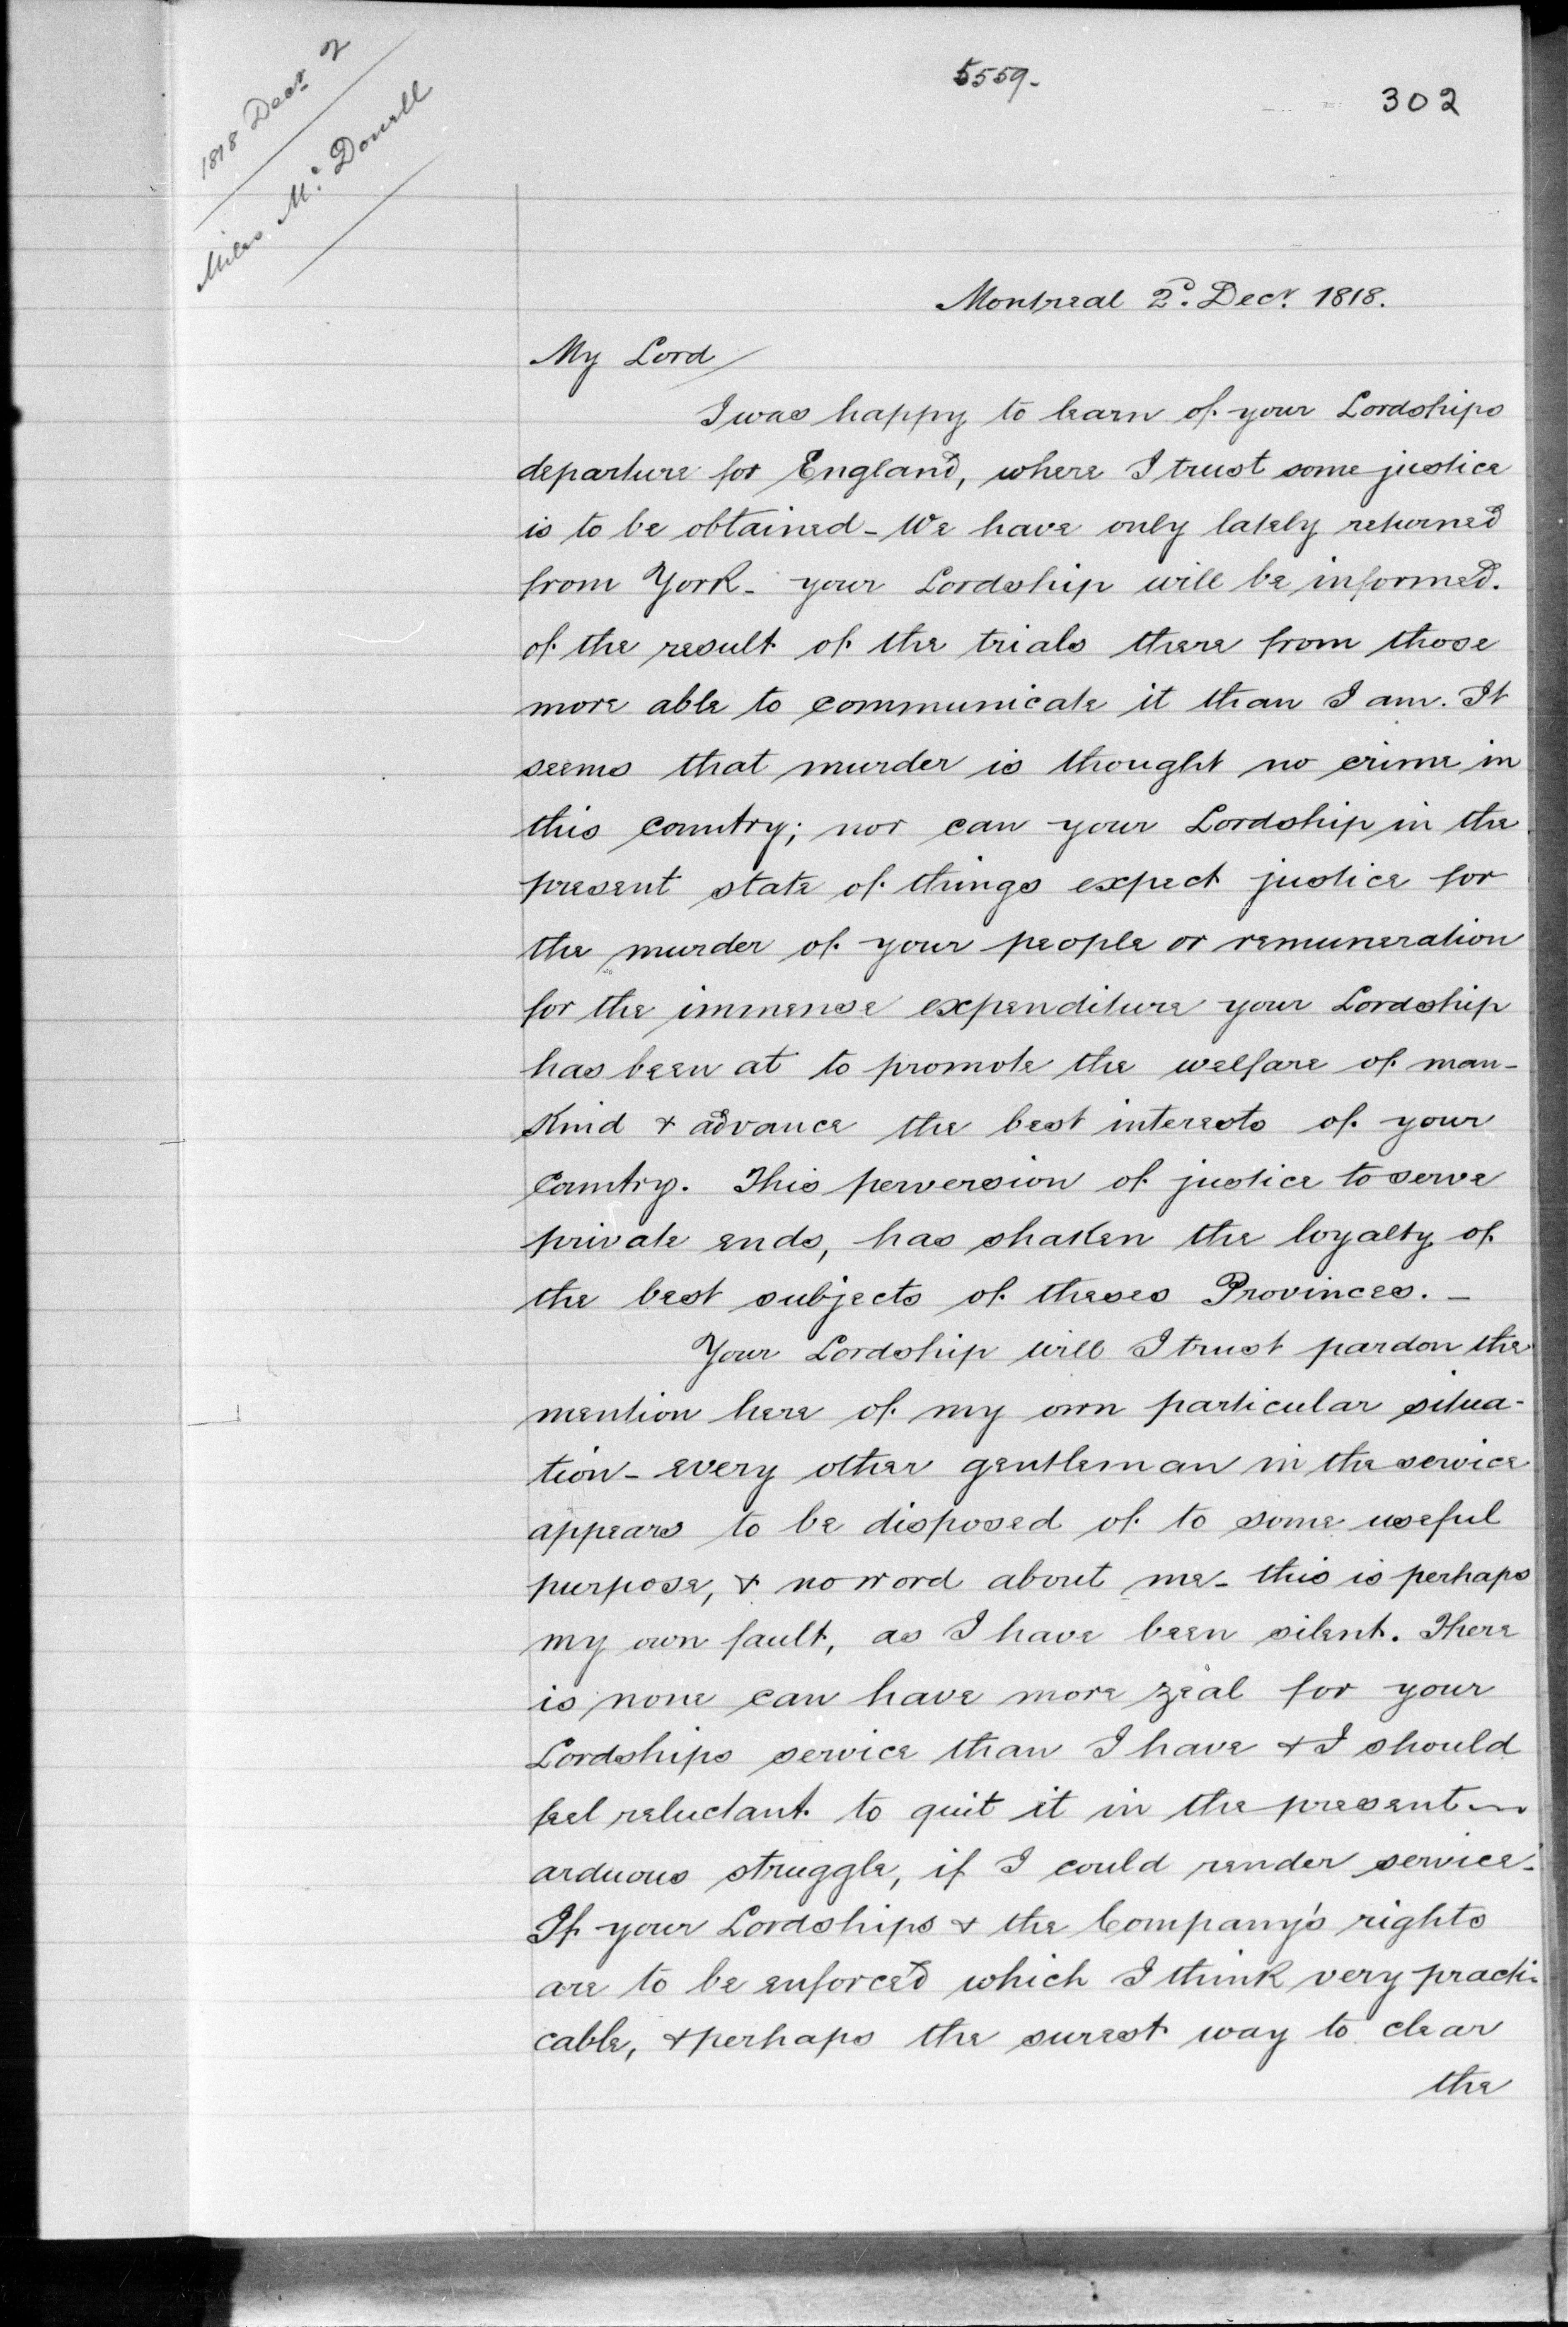 5559-
302
1818 Decr 2
Miles Mc. Donell
Montreal 2d. Decr. 1818.
My Lord
I was happy to learn of your Lordships
departure for England, where I trust some justice
is to be obtained - We have only lately returned
from York - your Lordship will be informed.
of the result of the trials there from those
more able to communicate it than I am. It
seems that murder is thought no crime in
this country; nor can your Lordship in the
present state of things expect justice for
the murder of your people or remuneration
for the immense expenditure your Lordship
has been at to promote the welfare of man-
kind & advance the best interests of your
Country. This perversion of justice to serve
private ends, has shaken the loyalty of
the best subjects of theses Provinces. -
Your Lordship will I trust pardon the
mention here of my own particular situa-
tion - every other gentleman in the service
appears to be disposed of to some useful
purpose, & no word about me - this is perhaps
my own fault, as I have been silent. There
is none can have more zeal for your
Lordships service than I have & I should
feel reluctant to quit it in the present
arduous struggle, if I could render service.
If your Lordships & the Company's rights
are to be enforced which I think very practi-
cable, & perhaps the surest way to clear
the